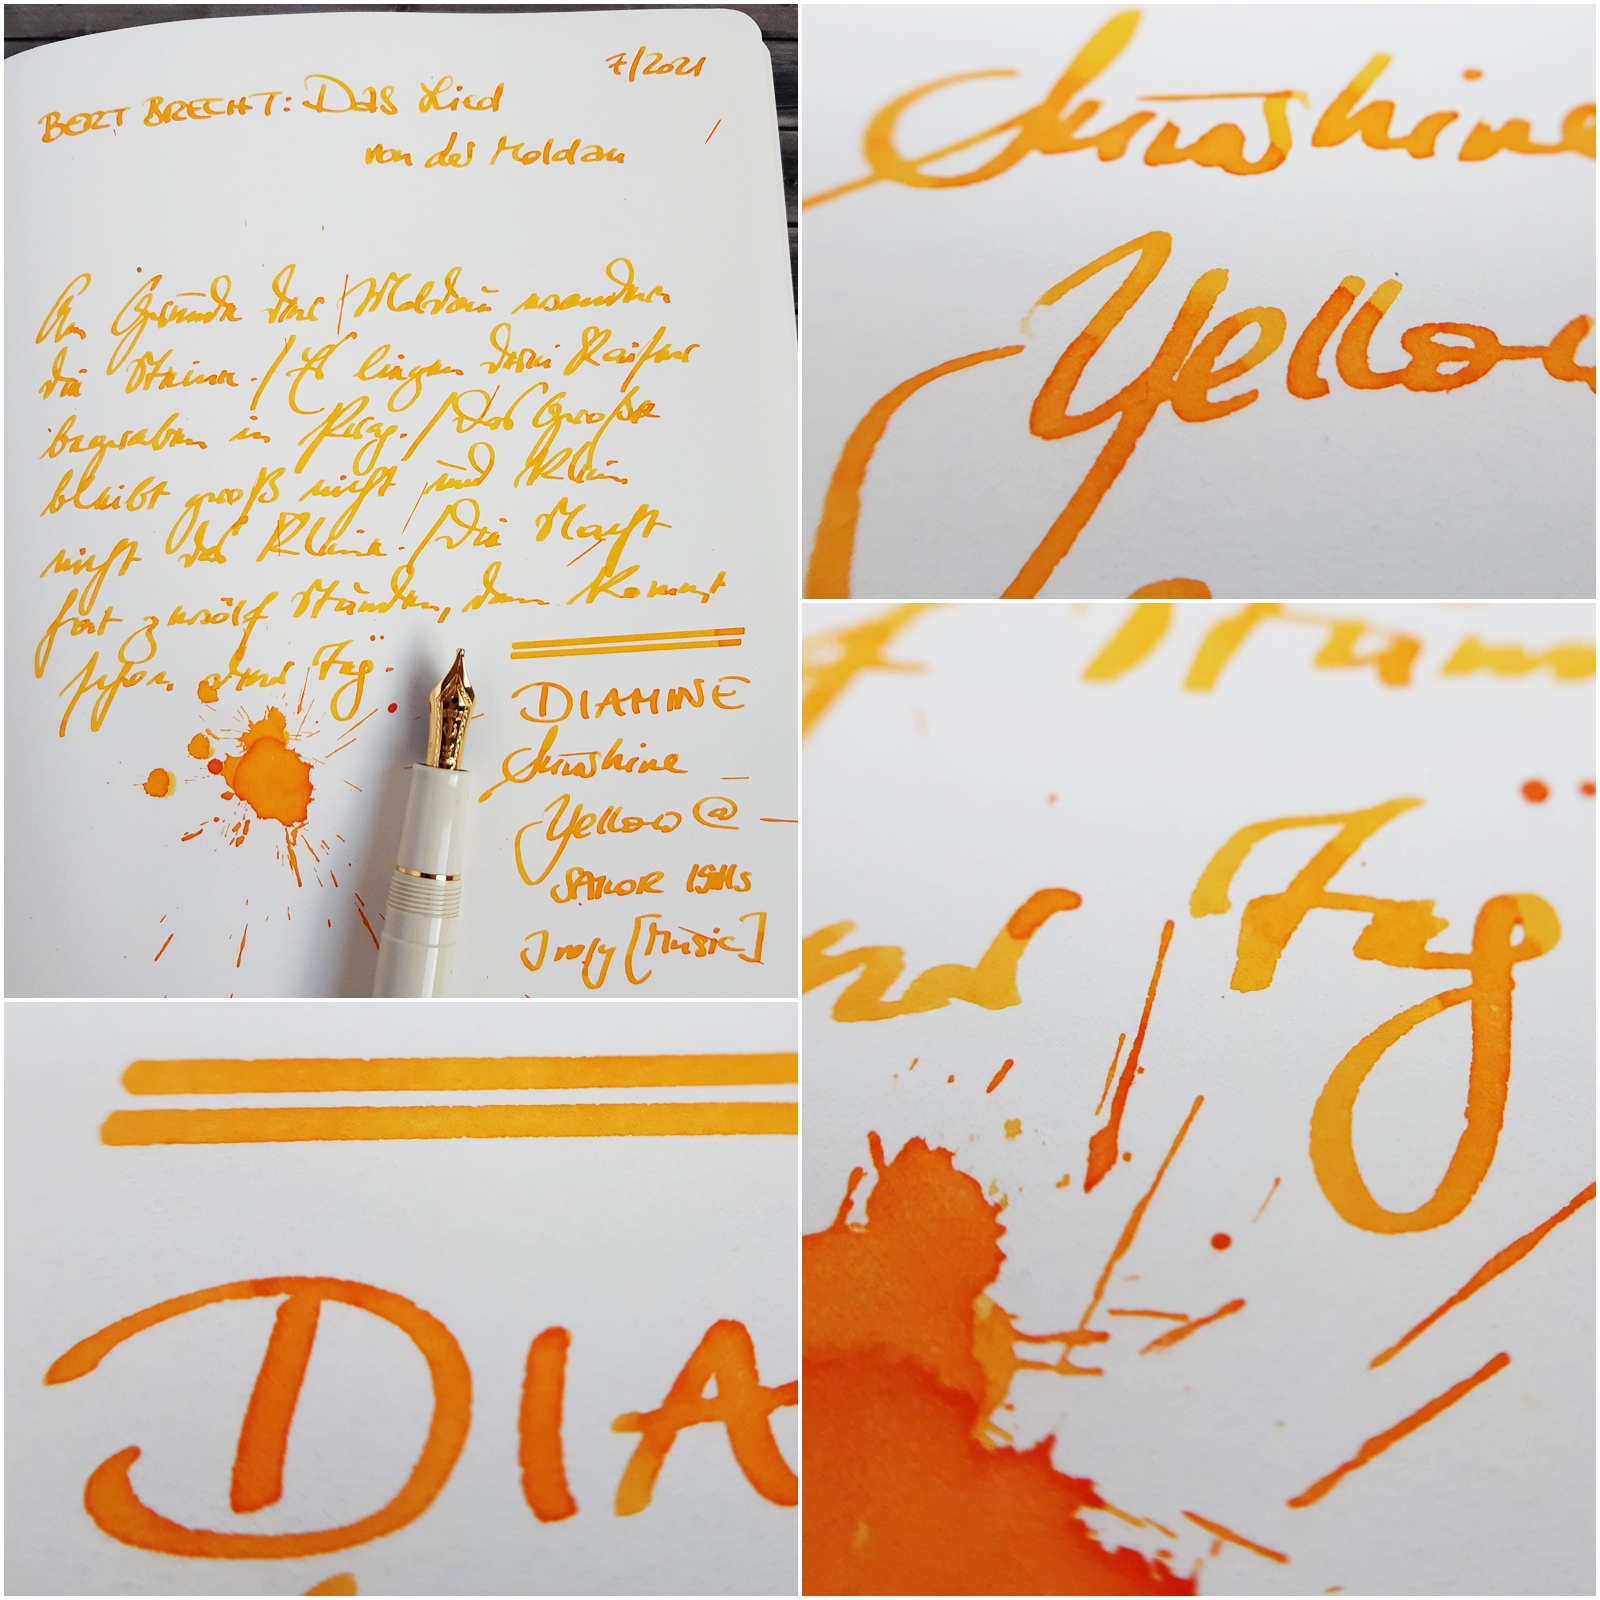 7/2021
BERT BRECHT: Das Lied
von der Moldau
Am Grunde der Moldau wandern
die Steine. / Es liegen drei Kaiser
begraben in Prag. / Das Große
bleibt groß nicht und klein
nicht das Kleine. / Die Nacht
hat zwölf Stunden, dann kommt
schon der Tag.
DIAMINE
Sunshine
Yellow @
SAILOR 1911s
Ivory [Music]
Sunshine
Yellow
DIA
Tag